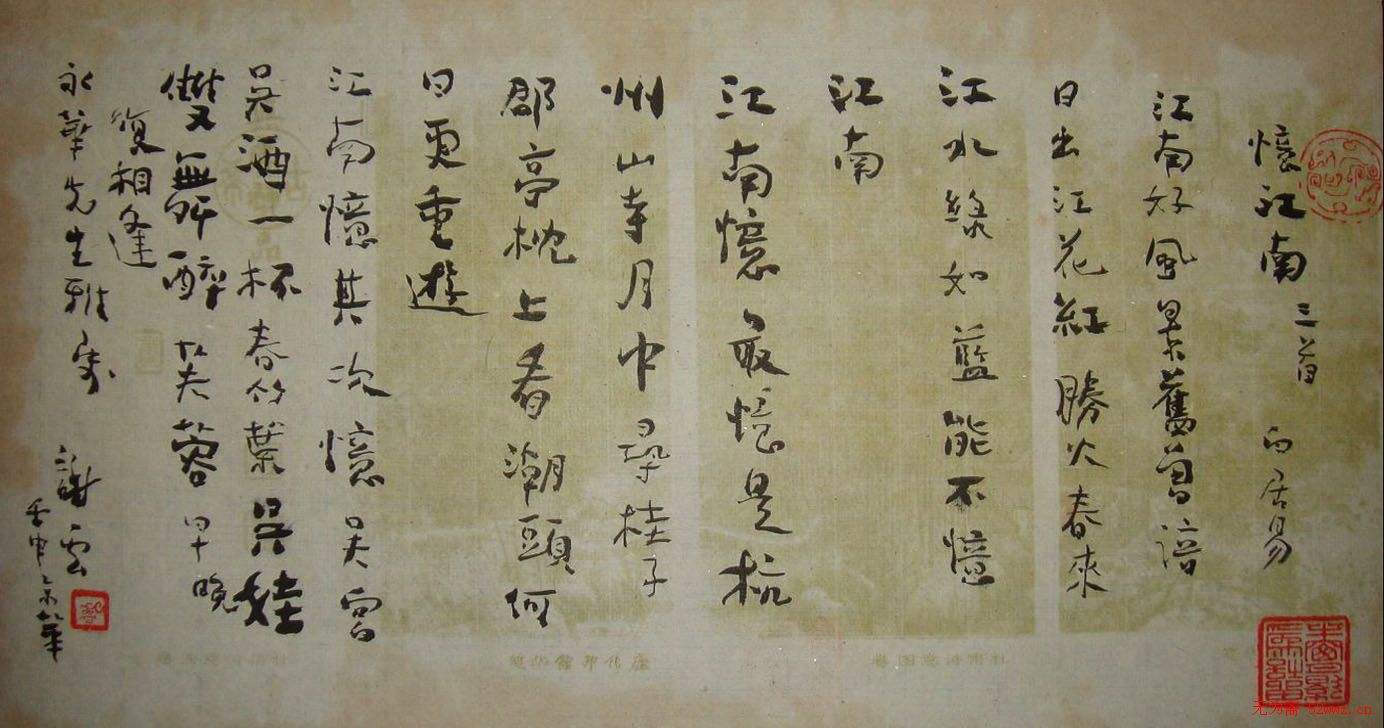 憶江南 三首 白居易
江南好風景舊曾諳
日出江花紅勝火春來
江水綠如藍能不憶
江南
江南憶最憶是杭
州山寺月中尋桂子
郡亭枕上看潮頭何
日更重遊
江南憶其次憶吳宮
吳酒一杯春竹葉吳娃
雙舞醉芙蓉早晚
復相逢
永華先生雅屬
謝雲
壬申京華